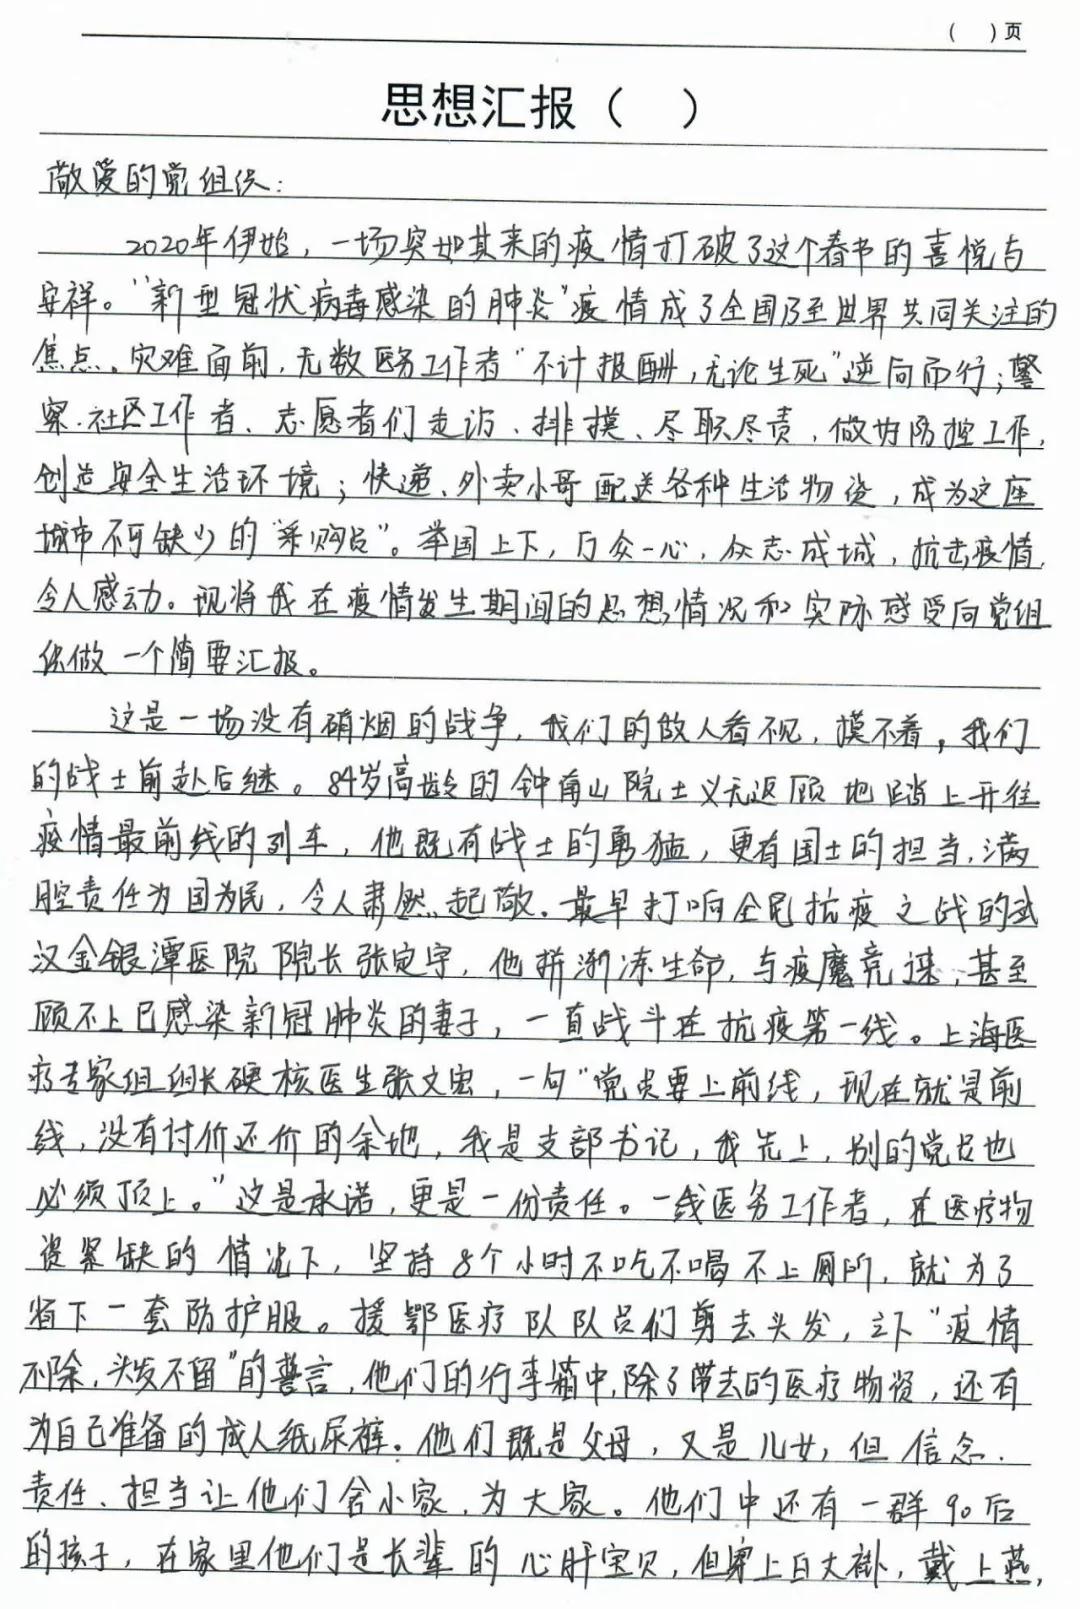 （ ）页
思想汇报（ ）
敬爱的党组织：
2020年伊始，一场突如其来的疫情打破了这个春节的喜悦与
安祥。“新型冠状病毒感染的肺炎”疫情成了全国乃至世界共同关注的
焦点。灾难面前，无数医务工作者“不计报酬，无论生死”逆向而行；警
察、社区工作者、志愿者们走访、排摸、尽职尽责，做好防控工作，
创造安全生活环境；快递、外卖小哥配送各种生活物资，成为这座
城市不可缺少的“采购员”。举国上下，万众一心，众志成城，抗击疫情，
令人感动。现将我在疫情发生期间的思想情况和实际感受向党组
织做一个简要汇报。
这是一场没有硝烟的战争，我们的敌人看不见，摸不着，我们
的战士前赴后继。84岁高龄的钟南山院士义无返顾地踏上开往
疫情最前线的列车，他既有战士的勇猛，更有国士的担当，满
腔责任为国为民，令人肃然起敬。最早打响全民抗疫之战的武
汉金银潭医院院长张定宇，他拼渐冻生命，与疫魔竞速，甚至
顾不上已感染新冠肺炎的妻子，一直战斗在抗疫第一线。上海医
疗专家组组长硬核医生张文宏，一句“党员要上前线，现在就是前
线，没有讨价还价的余地，我是支部书记，我先上，别的党员也
必须顶上。”这是承诺，更是一份责任。一线医务工作者，在医疗物
资紧缺的情况下，坚持8个小时不吃不喝不上厕所，就为了
省下一套防护服。援鄂医疗队队员们剪去头发，立下“疫情
不除，头发不留”的誓言，他们的行李箱中，除了带去的医疗物资，还有
为自己准备的成人纸尿裤。他们既是父母，又是儿女，但信念、
责任、担当让他们舍小家，为大家。他们中还有一群90后
的孩子，在家里他们是长辈的心肝宝贝，但穿上白大褂，戴上燕，